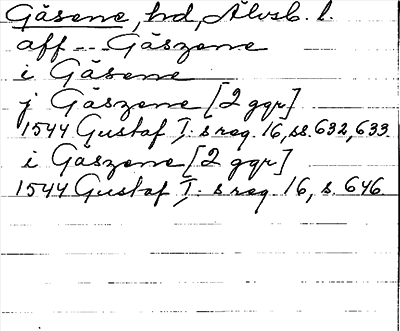 Gåsene, hd, Älvsb. l.
aff -- Gåszene
i Gåsene
j Gåszene [2 ggr]
1544 Gustaf I:s reg. 16, ss. 632, 633.
i Gåszene [2 ggr]
1544 Gustaf I:s reg. 16, s. 646.